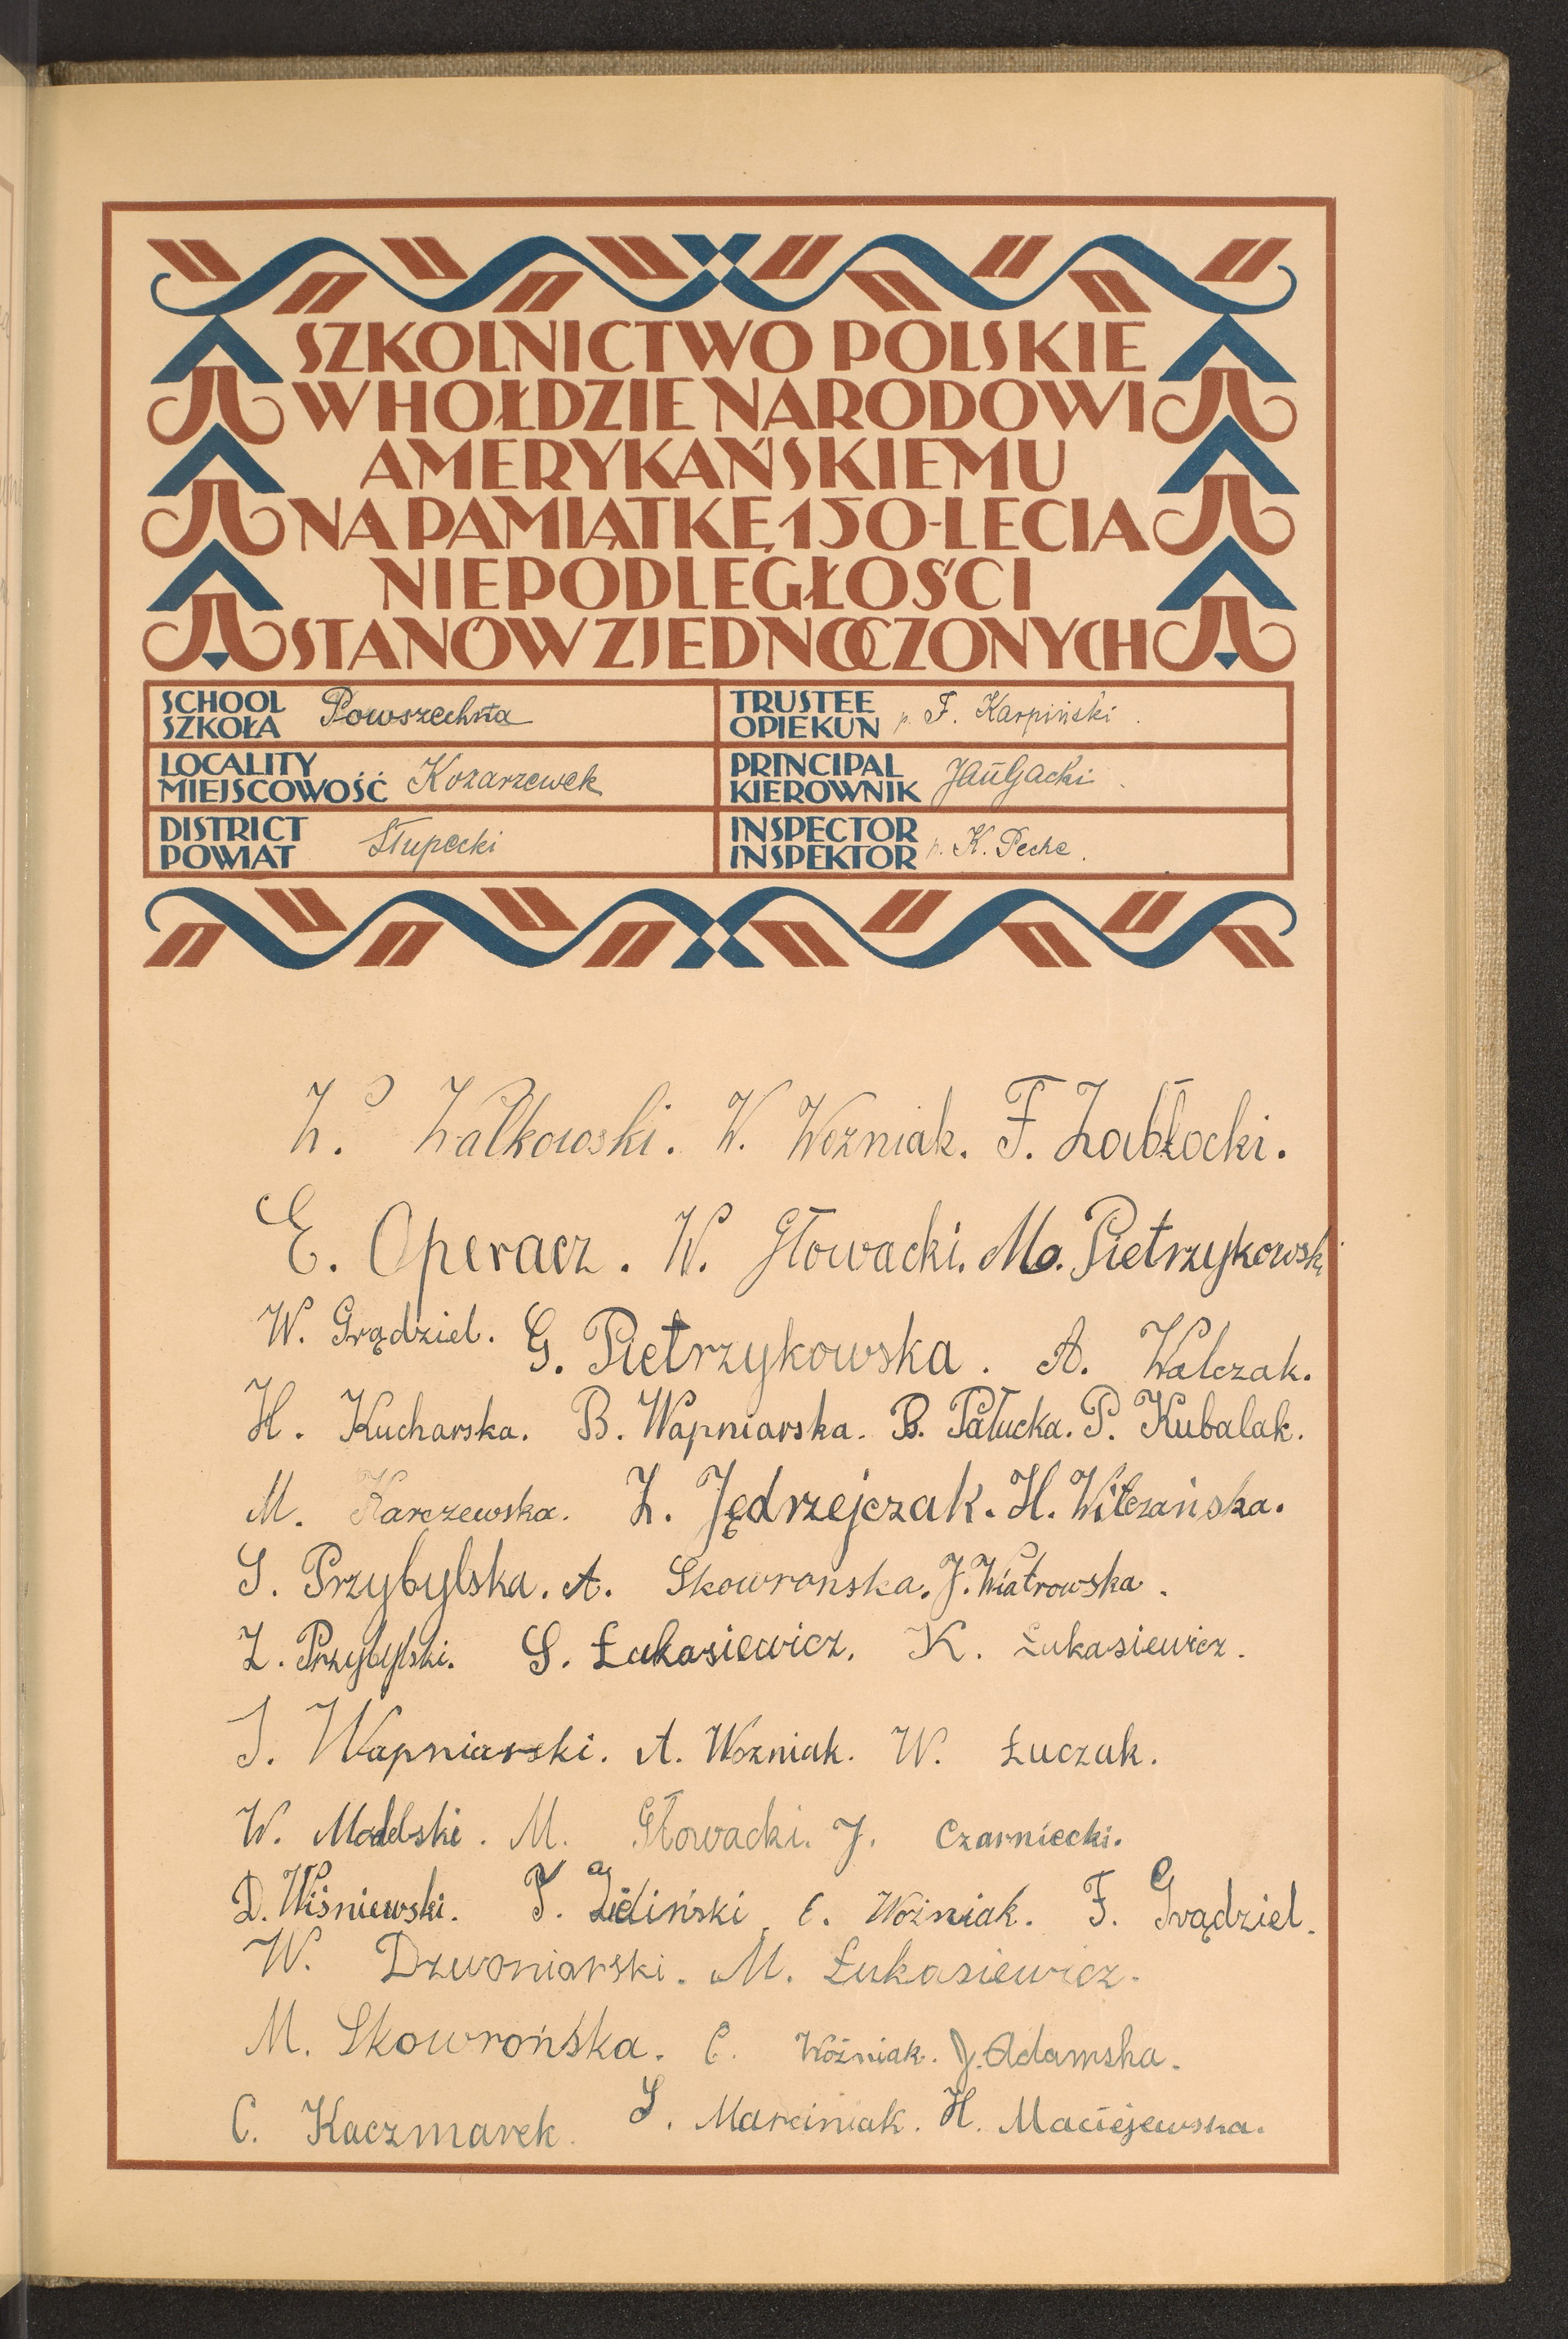 SZKOLNICTWO POLSKIE
W HOŁDZIE NARODOWI
AMERYKAŃSKIEMU
NA PAMIĄTKĘ 150-LECIA
NIEPODLEGŁOŚCI
STANÓW ZJEDNOCZONYCH
SCHOOL
SZKOŁA Powszechna
TRUSTEE
OPIEKUN p. F. Karpiński.
LOCALITY
MIEJSCOWOŚĆ Kozarzewek
PRINCIPAL
KIEROWNIK
DISTRICT
POWIAT Słupecki
INSPECTOR
INSPEKTOR p. K. Peche.
Z. Walkowski. W. Woźniak. F. Zabłocki.
E. Operacz. W. Głowacki. M. Pietrzykowski
W. Grądziel. G. Pietrzykowska. A. Walczak.
H. Kucharska. B. Wapniarska. B. Pałucka. P. Kubalak.
M. Karczewska. Z. Jędrzejczak. H. Wilczańska.
S. Przybylska. A. Skowronska. J. Wiatrowska.
Z. Przybylski. S. Łukasiewicz. K. Łukasiewicz.
J. Wapniarski. A. Wozniak. W. Łuczak.
W. Modelski. M. Głowacki. J. Czarniecki.
D. Wiśniewski. T. E. Woźniak. F. Grądziel.
W. Dzwoniarski. M. Łukasiewicz.
M. Skowrońska. C. Woźniak. J. Adamska.
C. Kaczmarek. S. Marciniak. H. Maciejewska.